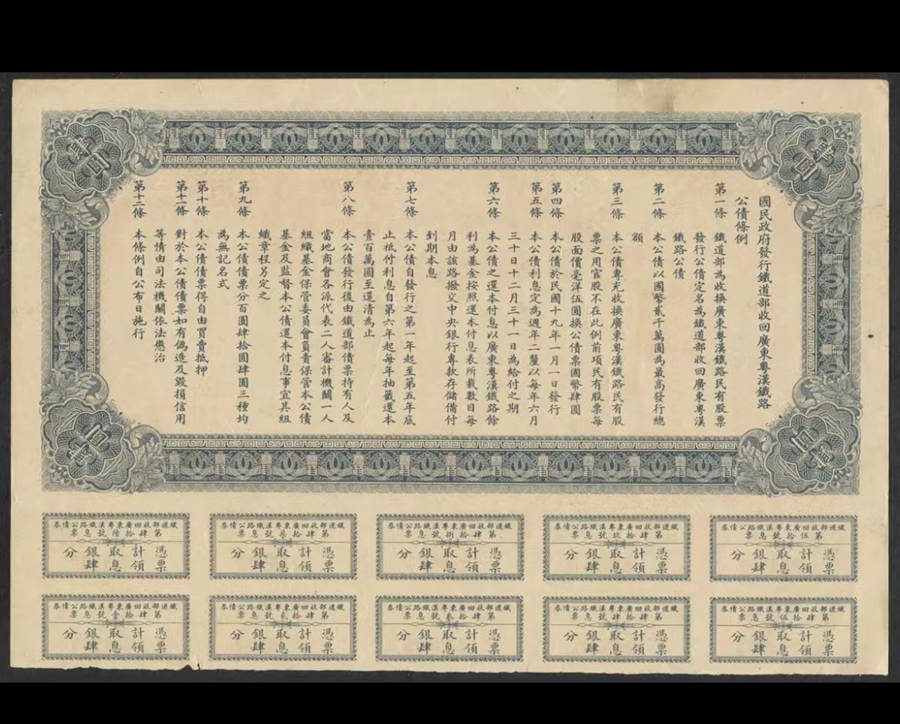 國民政府發行鐵道部收回廣東粵漢鐵路
公債條例
第一條 鐵道部為收換廣東粵漢鐵路民有股票
發行公債定名為鐵道部收回廣東粵漢
鐵路公債
第二條 本公債以國幣貳千萬圓為最高發行總
額
第三條 本公債專充收換廣東粵漢鐵路民有股
票之用官股不在此例前項民有股票每
股面價毫洋伍圓換公債票國幣肆圓
第四條 本公債於民國十九年一月一日發行
第五條 本公債利息定為週年二釐以每年六月
三十日十二月三十一日為給付之期
第六條 本公債之還本付息以廣東粵漢鐵路餘
利為基金按照還本付息表所載數目每
月由該路撥交中央銀行專款存儲備付
到期本息
第七條 本公債自發行之第一年起至第五年底
止祇付利息自第六年起每年抽籤還本
壹百萬圓至還清為止
第八條 本公債發行後由鐵道部債票持有人及
當地商會各派代表二人審計機關一人
組織基金保管委員會負責保管本公債
基金及監督本公債還本付息事宜其組
織章程另定之
第九條 本公債債票分百圓肆拾圓肆圓三種均
為無記名式
第十條 本公債債票得自由買賣抵押
第十一條 對於本公債債票如有偽造及毀損信用
等情由司法機關依法懲治
第十二條 本條例自公布日施行
鐵道部收回廣東粵漢鐵路公債券
第伍拾號息票
憑票計領取息銀肆分
鐵道部收回廣東粵漢鐵路公債券
第肆拾玖號息票
憑票計領取息銀肆分
鐵道部收回廣東粵漢鐵路公債券
第肆拾捌號息票
憑票計領取息銀肆分
鐵道部收回廣東粵漢鐵路公債券
第肆拾柒號息票
憑票計領取息銀肆分
鐵道部收回廣東粵漢鐵路公債券
第肆拾陸號息票
憑票計領取息銀肆分
鐵道部收回廣東粵漢鐵路公債券
第肆拾伍號息票
憑票計領取息銀肆分
鐵道部收回廣東粵漢鐵路公債券
第肆拾肆號息票
憑票計領取息銀肆分
鐵道部收回廣東粵漢鐵路公債券
第肆拾叁號息票
憑票計領取息銀肆分
鐵道部收回廣東粵漢鐵路公債券
第肆拾貳號息票
憑票計領取息銀肆分
鐵道部收回廣東粵漢鐵路公債券
第肆拾壹號息票
憑票計領取息銀肆分